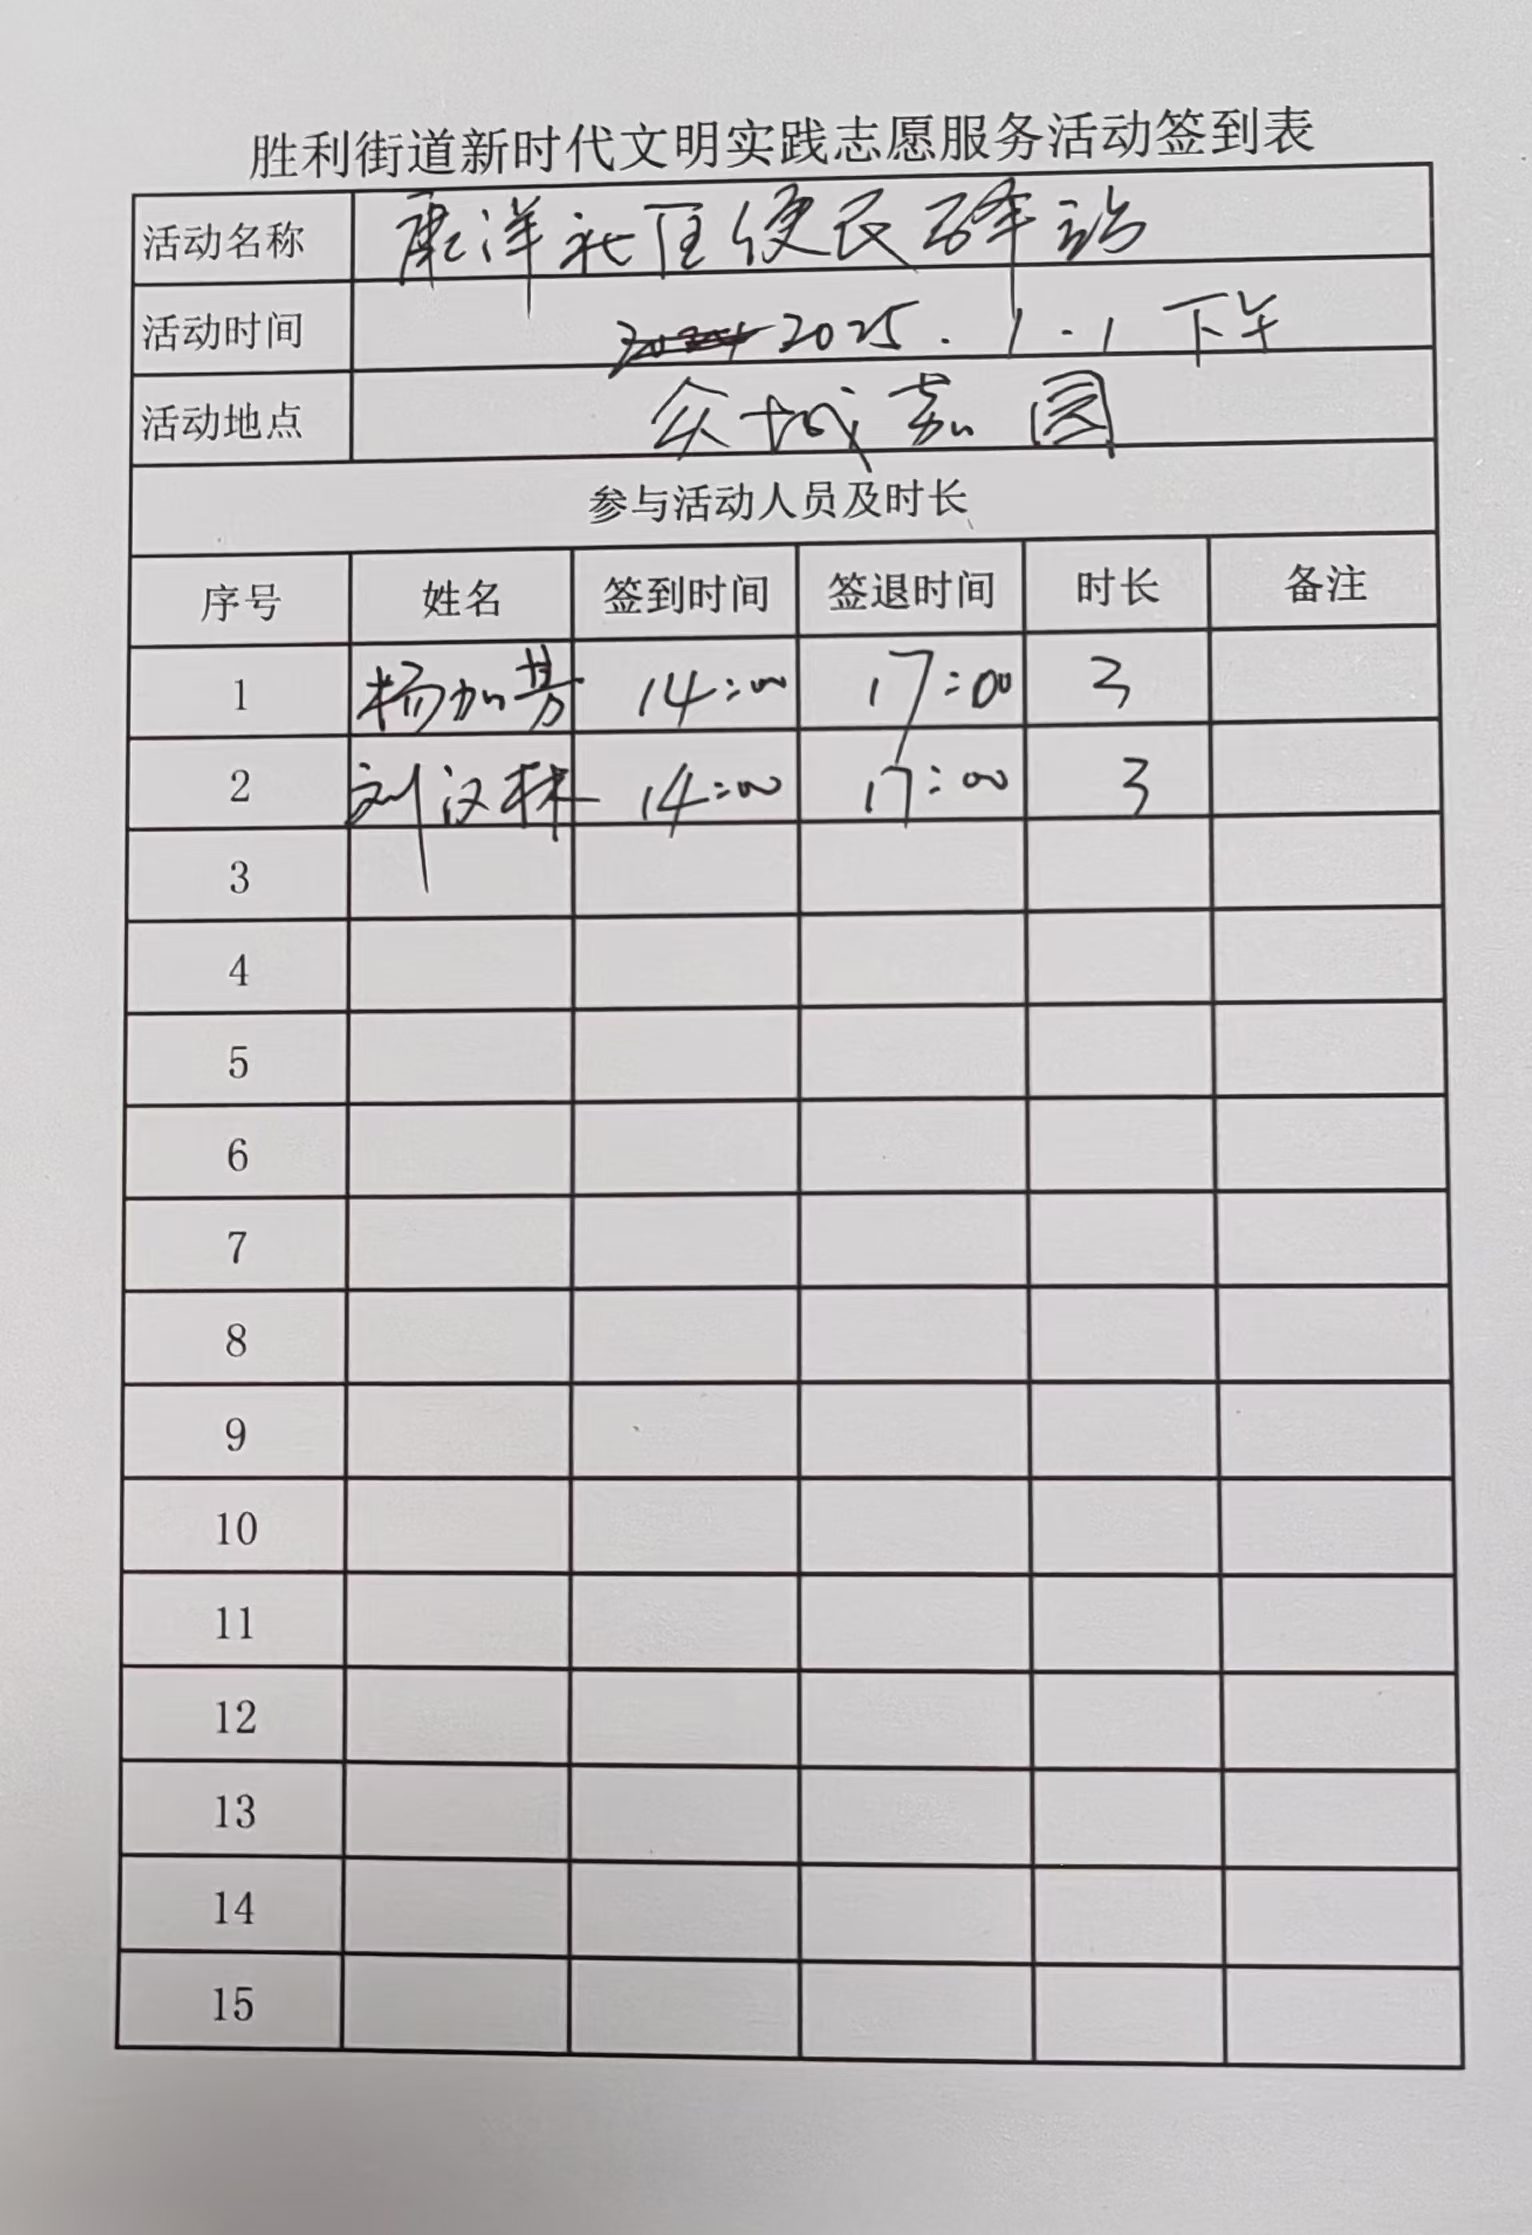 胜利街道新时代文明实践志愿服务活动签到表
活动名称 康洋社区便民驿站
活动时间 2025.1.1下午
活动地点 众城嘉园
参与活动人员及时长
序号 姓名 签到时间 签退时间 时长 备注
1 杨加芳 14:00 17:00 3
2 刘汉林 14:00 17:00 3
3
4
5
6
7
8
9
10
11
12
13
14
15